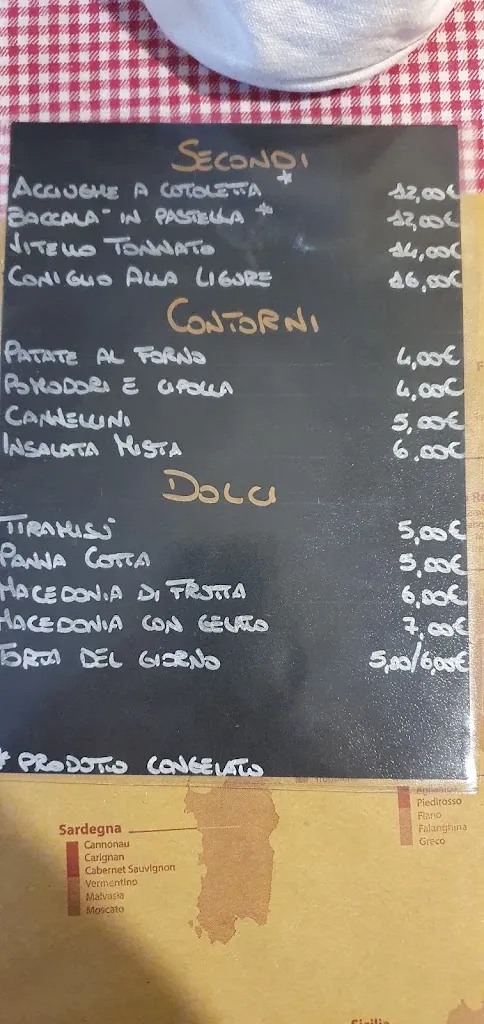 SECONDI
ACCIUGHE A COTOLETTA * 12,00€
BACCALA' IN PASTELLA * 12,00€
VITELLO TONNATO 14,00€
CONIGLIO ALLA LIGURE 16,00€
CONTORNI
PATATE AL FORNO 4,00€
POMODORI E CIPOLLA 4,00€
CANNELLINI 5,00€
INSALATA MISTA 6,00€
DOLCI
TIRAMISÙ 5,00€
PANNA COTTA 5,00€
MACEDONIA DI FRUTTA 6,00€
MACEDONIA CON GELATO 7,00€
TORTA DEL GIORNO 5,00/6,00€
* PRODOTTO CONGELATO
Sardegna
Cannonau
Carignan
Cabernet Sauvignon
Vermentino
Malvasia
Moscato
Piedirosso
Fiano
Falanghina
Greco